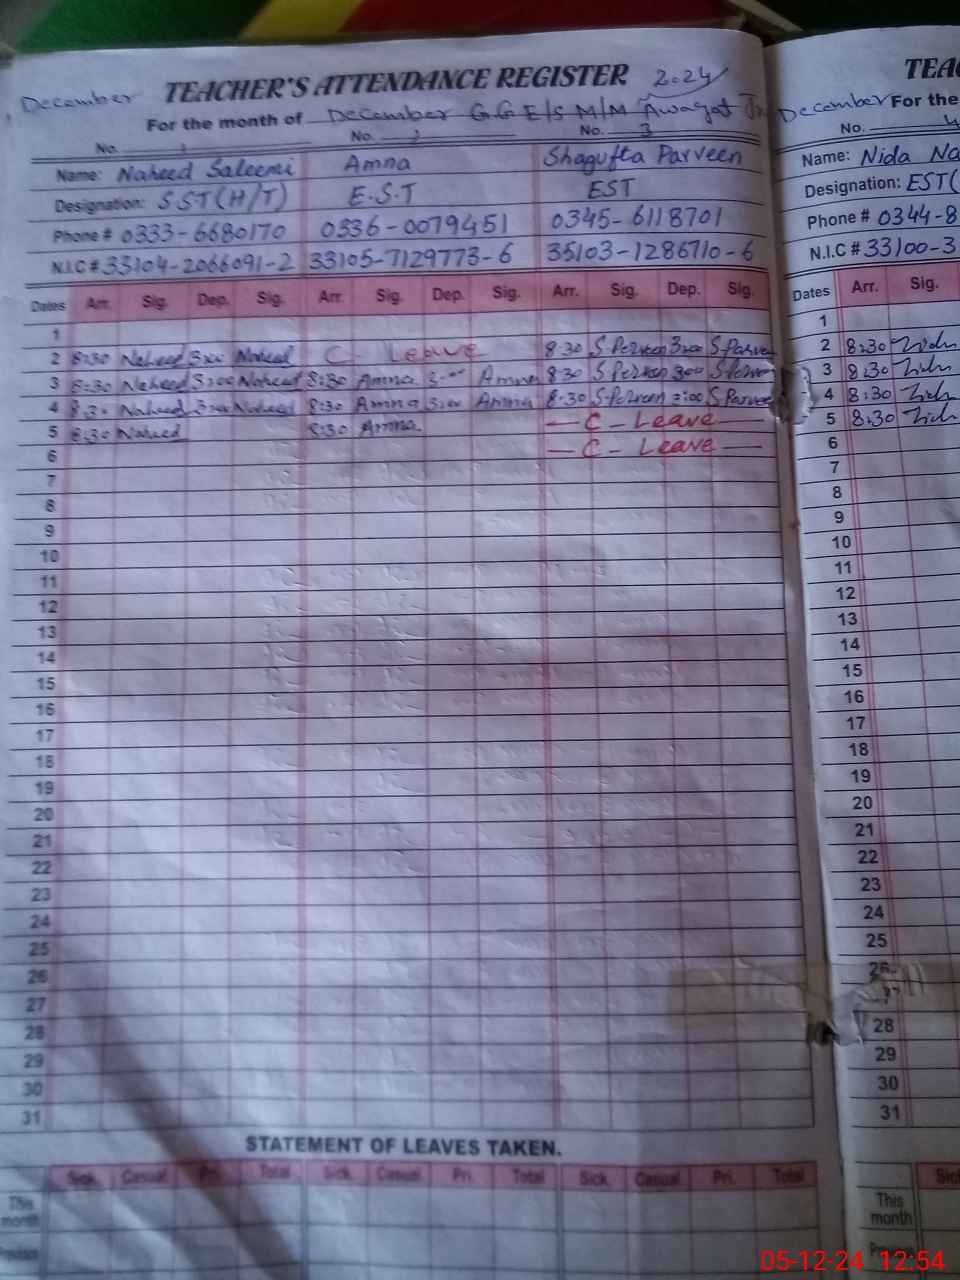 TEACHER'S ATTENDANCE REGISTER 2024
December
For the month of December G G E/S M/M Awagat
No. 1 No. 2 No. 3
Name: Naheed Saleemi Amna Shagufta Parveen
Designation: SST(H/T) E.S.T EST
Phone # 0333-6680170 0336-0079451 0345-6118701
N.I.C # 33104-2066091-2 33105-7129773-6 35103-1286710-6
Dates Arr. Sig. Dep. Sig. Arr. Sig. Dep. Sig. Arr. Sig. Dep. Sig.
1
2 8:30 Naheed 3:00 Naheed C- Leave 8:30 S Parveen 3:00 S Parveen
3 8:30 Naheed 3:00 Naheed 8:30 Amna 3:00 Amna 8:30 S Parveen 3:00 S Parveen
4 8:30 Naheed 3:00 Naheed 8:30 Amna 3:00 Amna 8:30 S.Parveen 3:00 S Parveen
5 8:30 Naheed 8:30 Amna. — C - Leave —
6 — C - Leave —
7
8
9
10
11
12
13
14
15
16
17
18
19
20
21
22
23
24
25
26
27
28
29
30
31
STATEMENT OF LEAVES TAKEN.
Sick. Casual Pri. Total Sick. Casual Pri. Total Sick. Casual Pri. Total
This
month
Previous
TEA
December For the
No. 4
Name: Nida Na
Designation: EST(
Phone # 0344-8
N.I.C # 33100-3
Dates Arr. Sig.
1
2 8:30
3 8:30
4 8:30
5 8:30
6
7
8
9
10
11
12
13
14
15
16
17
18
19
20
21
22
23
24
25
26
28
29
30
31
Sick
This
month
05-12-24 12:54